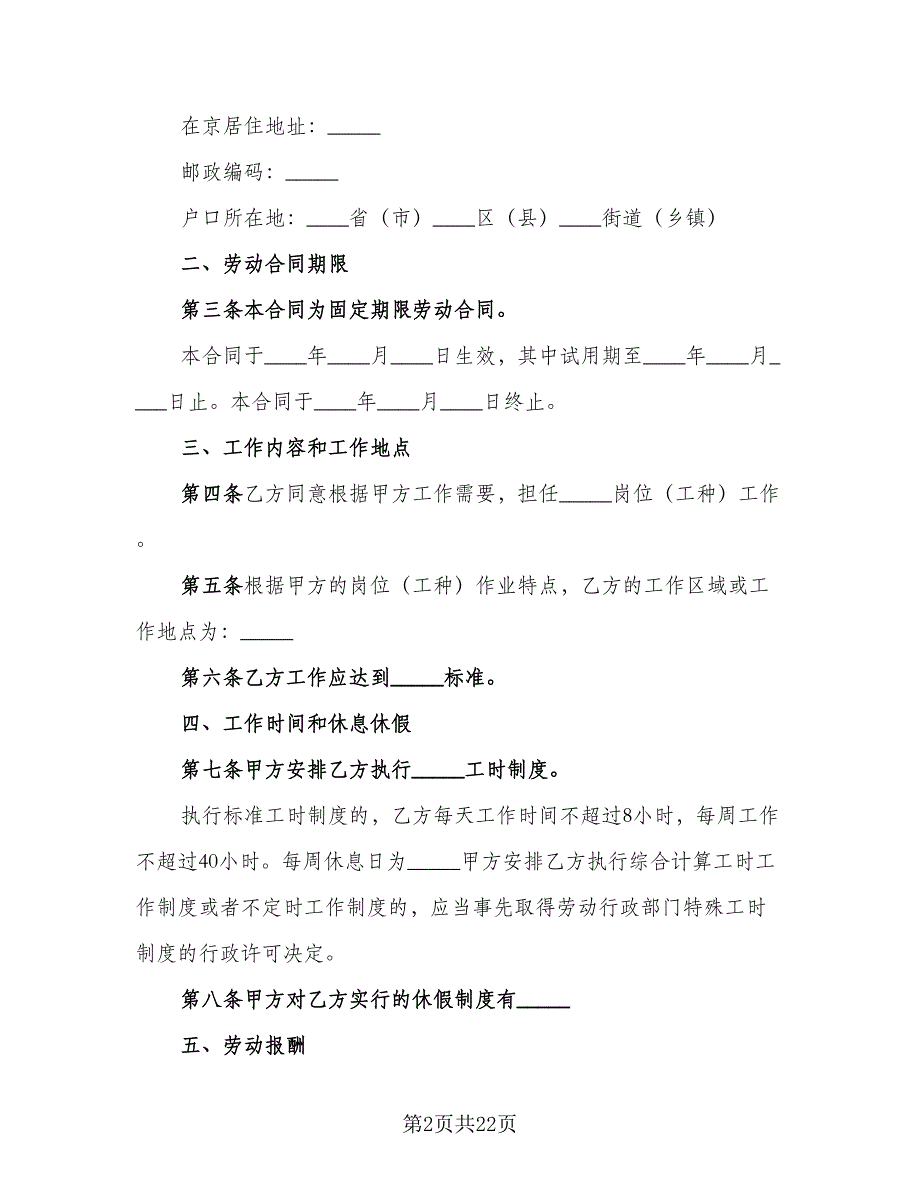 在京居住地址：_____
邮政编码：_____
户口所在地：____省（市）____区（县）____街道（乡镇）
二、劳动合同期限
第三条本合同为固定期限劳动合同。
本合同于____年____月____日生效，其中试用期至____年____月_
___日止。本合同于____年____月____日终止。
三、工作内容和工作地点
第四条乙方同意根据甲方工作需要，担任_____岗位（工种）工作
。
第五条根据甲方的岗位（工种）作业特点，乙方的工作区域或工
作地点为：_____
第六条乙方工作应达到_____标准。
四、工作时间和休息休假
第七条甲方安排乙方执行_____工时制度。
执行标准工时制度的，乙方每天工作时间不超过8小时，每周工作
不超过40小时。每周休息日为_____甲方安排乙方执行综合计算工时工
作制度或者不定时工作制度的，应当事先取得劳动行政部门特殊工时
制度的行政许可决定。
第八条甲方对乙方实行的休假制度有_____
五、劳动报酬
第2页共22页